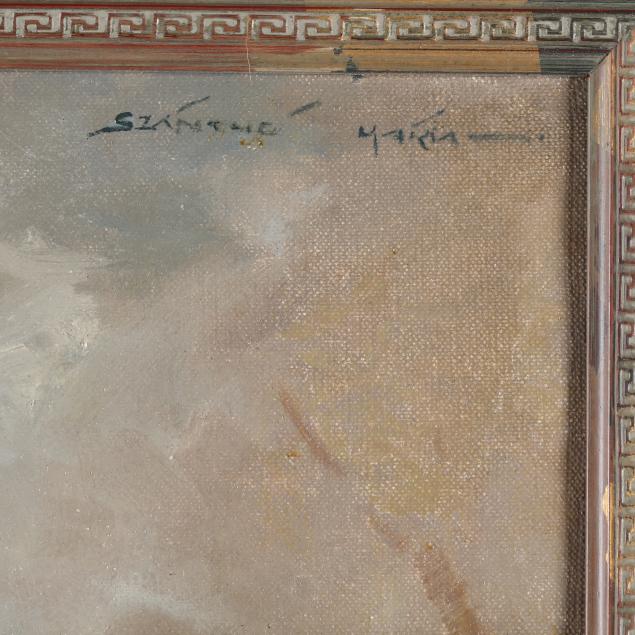 SZÁNTHÓ MÁRIA